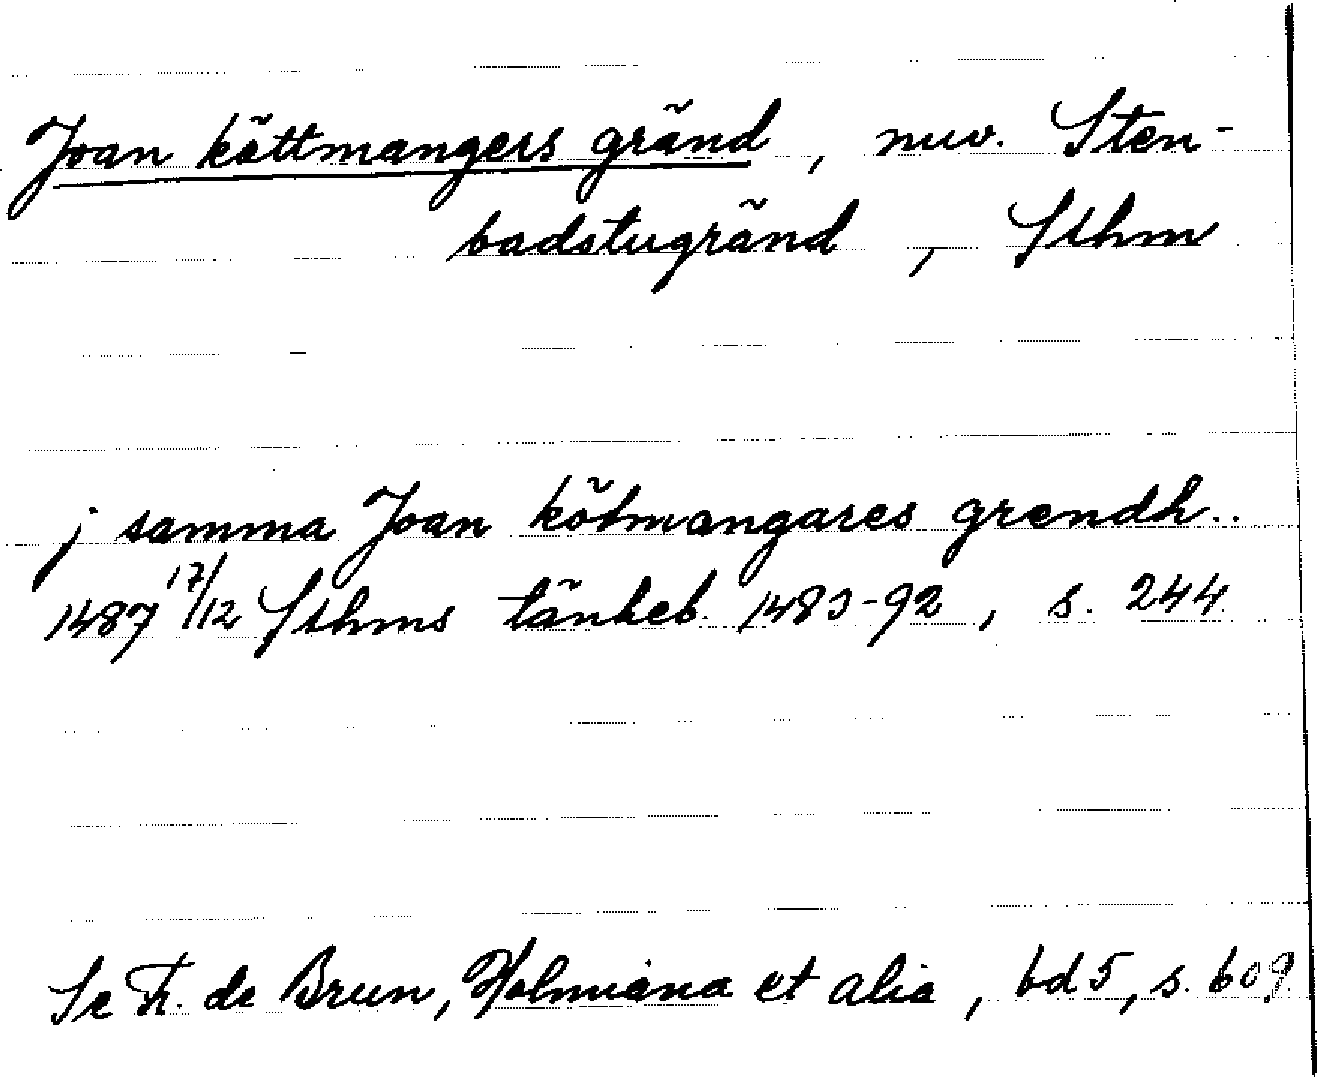 Joan köttmangers gränd, nuv. Sten-
badstugränd, Sthm
j samma Joan kötmangares grendh..
1487 17/12 Sthms tänkeb. 1483-92, s. 244
Se Fr. de Brun, Holmiana et alia, bd 5, s. 609.